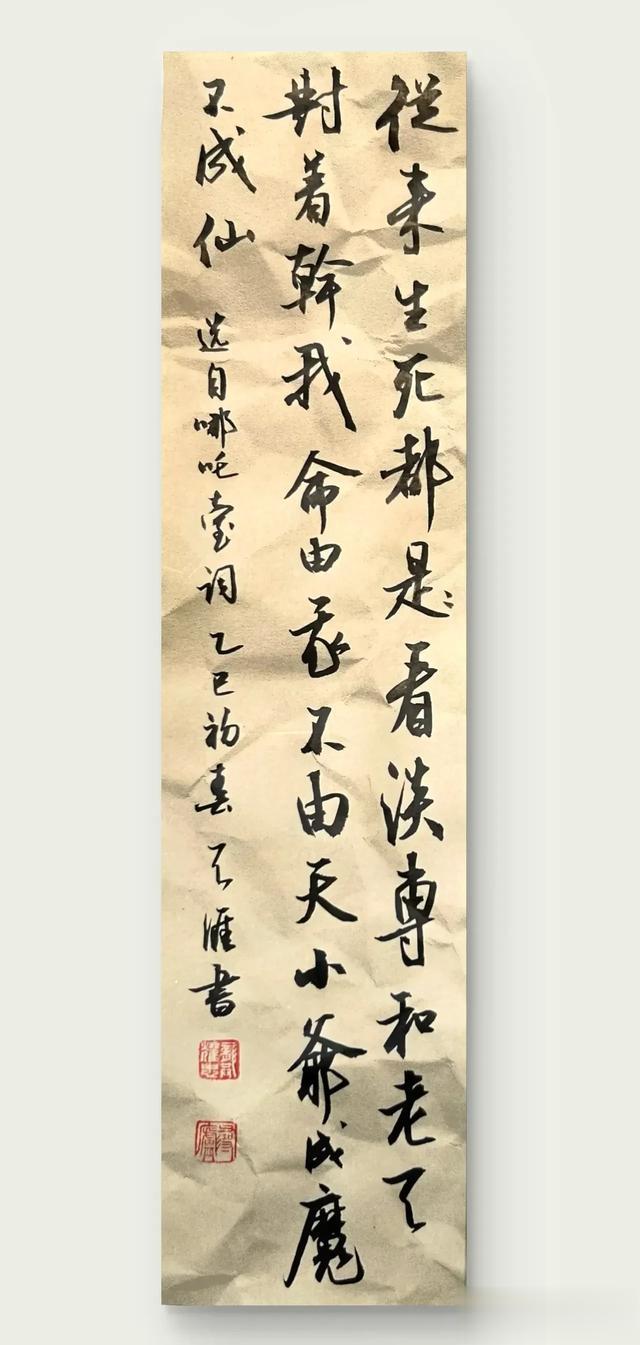 從来生死都是看淡專和老天
對着幹我命由我不由天小爺成魔
不成仙 选自哪吒臺词乙巳初春天涯書